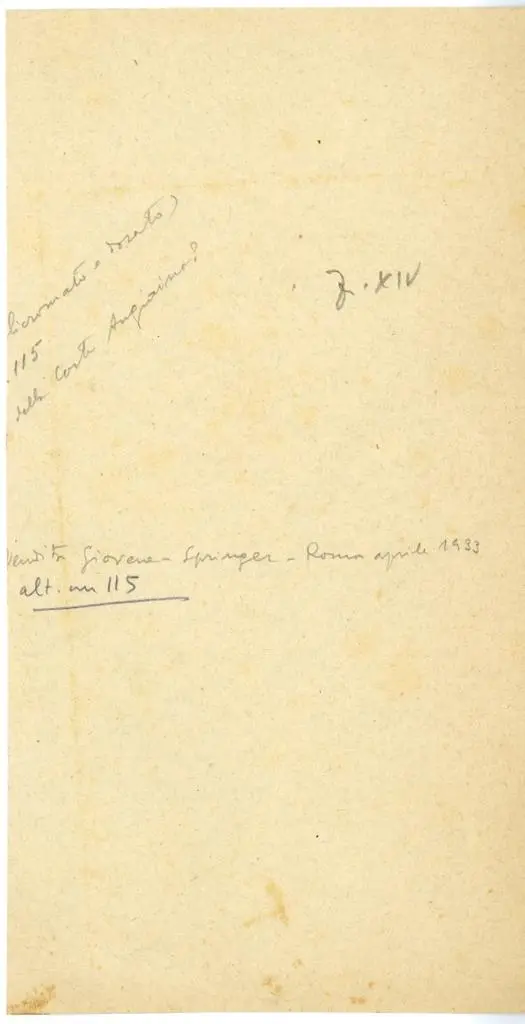 licromato e dorato)
.115
della Corte Angioina?
F. XIV
Vendita Giovene - Springer - Roma aprile 1933
alt. cm 115